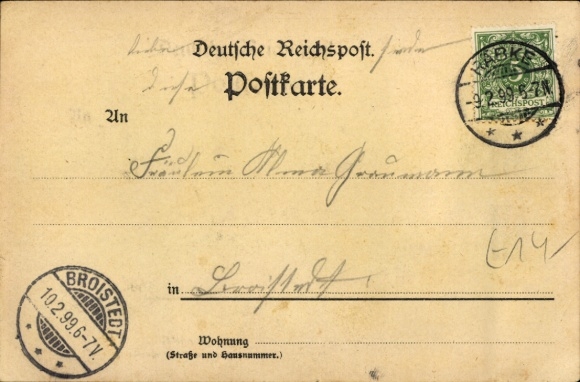 Deutsche Reichspost.
diese
Postkarte.
HARBKE
9.2.99.6-7.N.
5
REICHSPOST
An
Fräulein Alma Graumann
in Broistedt
BROISTEDT
10.2.99.6-7.V.
Wohnung
(Straße und Hausnummer.)